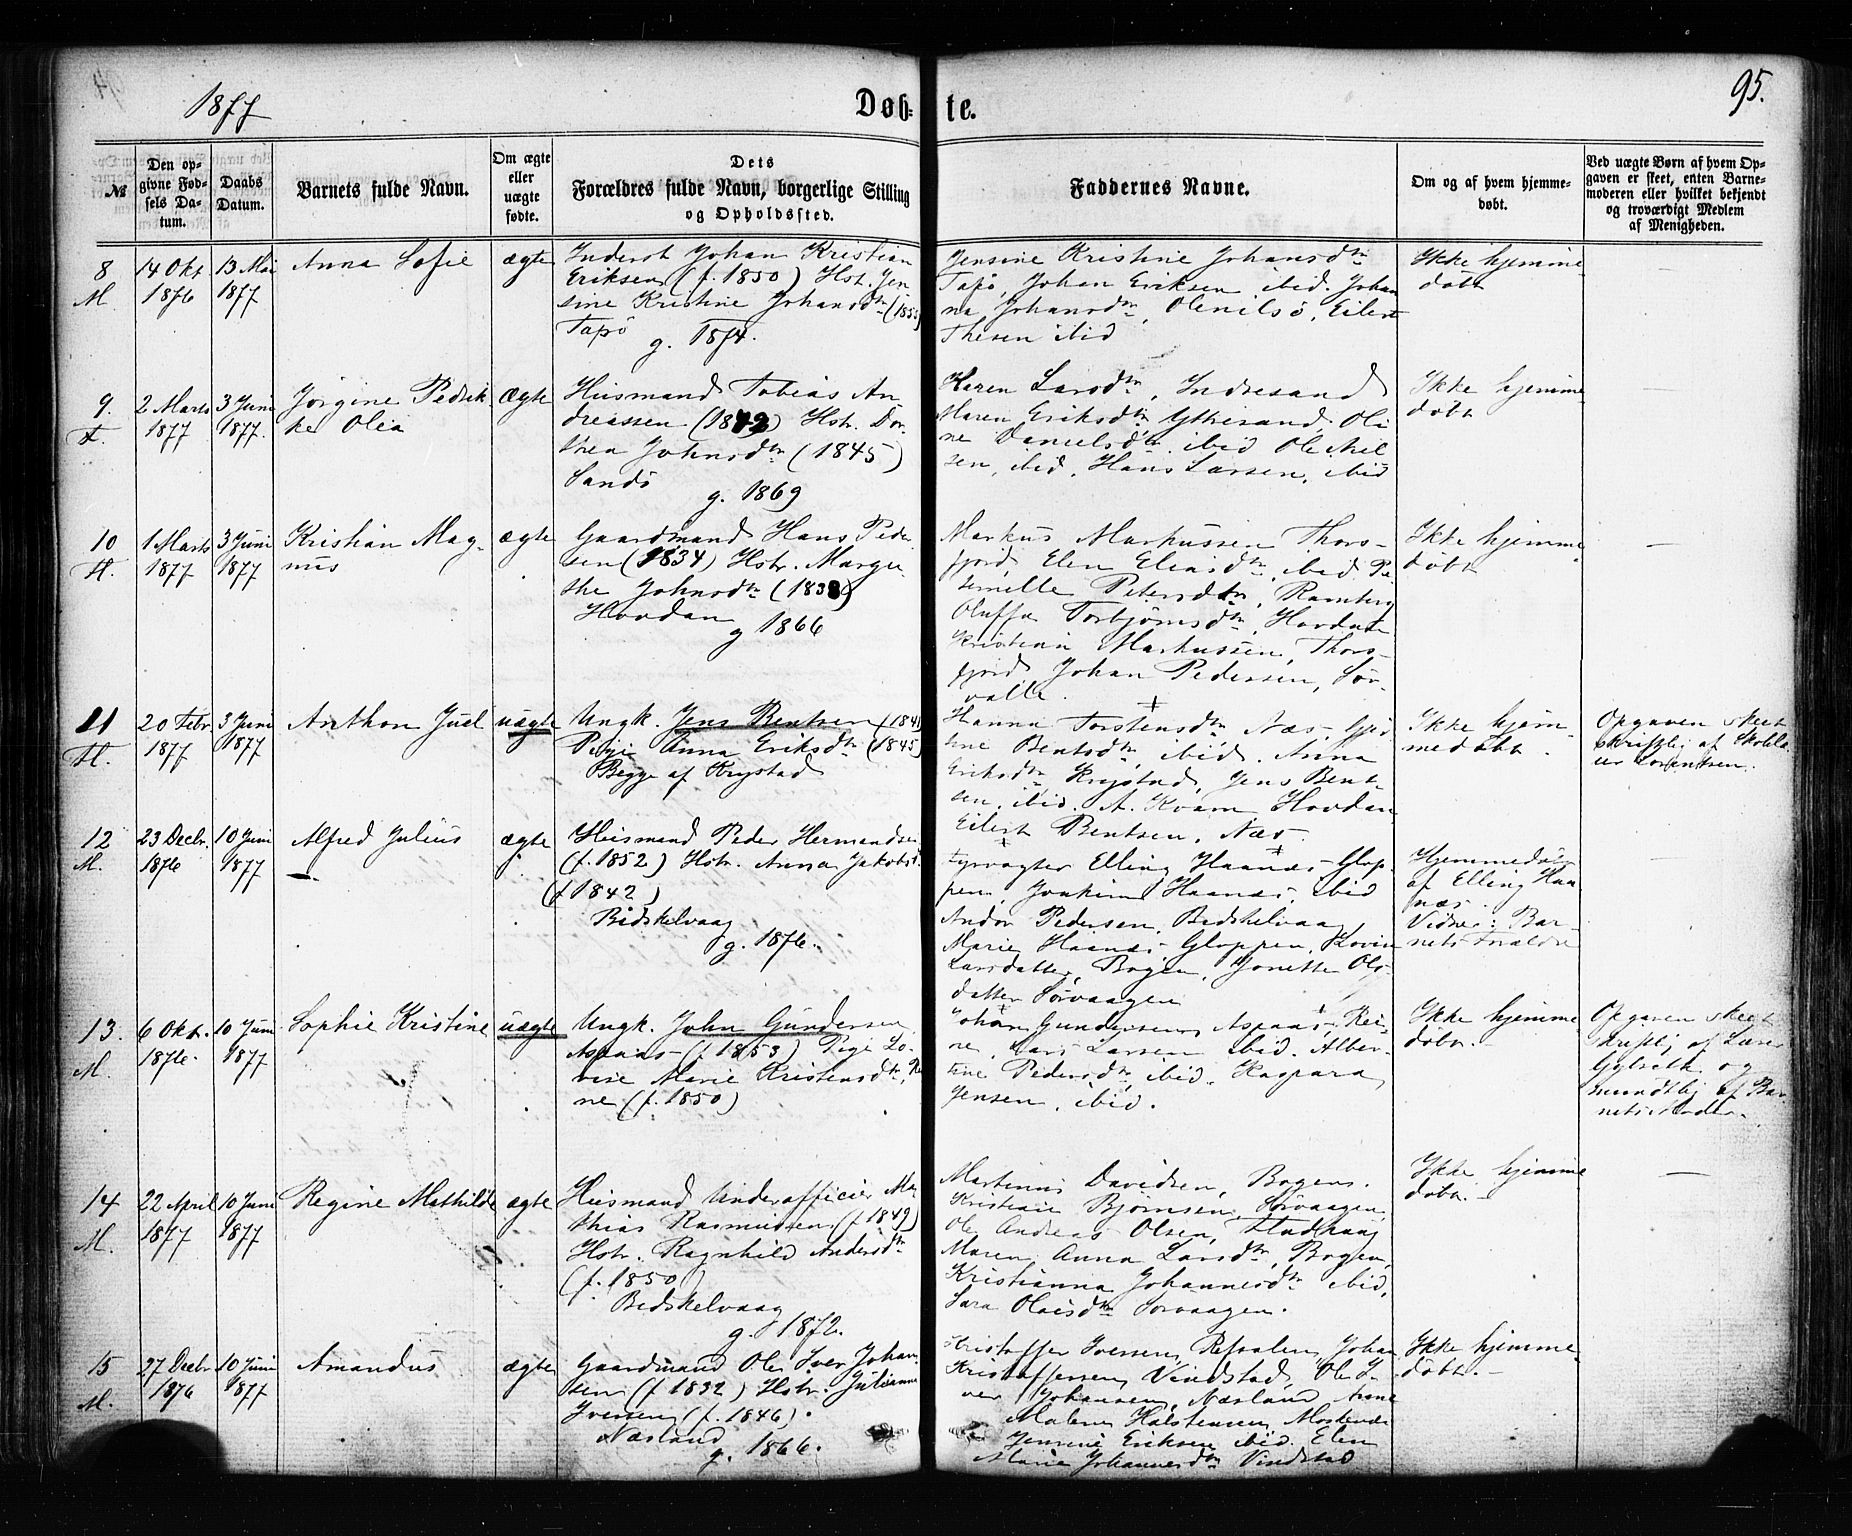 1877
Døb-
te.
95.
№
Den op-
givne Fød-
sels Da-
tum.
Daabs
Datum.
Barnets fulde Navn.
Om ægte
eller
uægte
fødte.
Dets
Forældres fulde Navn, borgerlige Stilling
og Opholdssted.
Faddernes Navne.
Om og af hvem hjemme-
døbt.
Ved uægte Børn af hvem Op-
gaven er skeet, enten Barne-
moderen eller hvilket bekjendt
og troværdigt Medlem
af Menigheden.
8
M.
14 Okt.
1876
13 Mai
1877
Anna Sofie
ægte
Inderst Johan Kristian
Eriksen (f. 1850) Hst. Jen
sine Kristine Johansdtr
Tapø
g. 1874.
Jensine Kristine Johansdtr
Tapø, Johan Eriksen ibid. Johan
na Johansdtr, Olenilsø, Eilert
Thesen ibid
Ikke hjemme
døbt
—
9.
F.
2 Marts
1877
3 Juni
1877.
Jørgine Pedrik
ke Olea
Ægte
Husmand Tobias An-
dreassen (1843) Hstr. Dor
thea Johnsdtr (1845)
Sandø
g. 1869
Karen Larsdtr, Indresand
Maren Eriksdtr Yttresand, Oli
ne Danielsdtr ibid Ole Niel
sen, ibid, Hans Larsen, ibid
Ikke hjemme
døbt
—
10
F.
1 Marts
1877
3 Juni
1877
Kristian Mag-
nus
ægte
Gaardmand Hans Peder
sen (1834) Hstr. Margre
the Johnsdtr (1838)
Hovdan
g 1866
Markus Markussen Thors-
fjord, Elen Eliasdtr, ibid. Pe
ternelle Petersdtr, Ramberg
Oluffa Torbjørnsdtr, Hovdan
Kristian Markussen, Thors-
fjord, Johan Pedersen, Sør-
valle.
Ikke hjemme
døbt
—
11
F.
20 Febr
1877
3 Juni
1877
Anthon Juel
uægte
Ungk. Jens Bentsen (1841)
Pige Anna Eriksdtr (1845)
Begge af Krystad
Hanna Torstensdtr Næs,
tine Bentsdtr, ibid. Anna
Eriksdtr Krystad, Jens Bent
sen, ibid. A. Kvam Hovdan
Eilert Bentsen, Næs
Ikke hjem-
medøbt.
Opgaven skeet
skriftlig af Skolelæ
rer Lorentsen.
12
M.
23 Decbr.
1876
10 Juni
1877
Alfred Julius
ægte
Husmand Peder Hermandsen
(f. 1852) Hstr. Anna Jakobsd.
(f 1842)
Bidskelvaag
g. 1876.
Fyrvogter Elling Haanæs Glop
pen, Joakim Haanæs, ibid
Andor Pedersen, Bedskelvaag
Marie Haanæs Gloppen, Lovise
Larsdatter, Bogen, Jonette Ols-
datter Sørvaagen
Hjemmedøbt
af Elling Haa
næs.
Vidner: Bar-
nets Forældre
13.
M.
6 Okt.
1876.
10 Juni
1877
Sophie Kristine
uægte
Ungk. John Gundersen
Aspaas (f. 1853) Pige Lo-
vise Marie Kristensdtr, Rei
ne (f. 1850)
Johan Gundersen, Aspaas, Rei-
ne, Lars Larsen ibid. Alber-
tine Pedersdtr, ibid. Kaspara
Jensen, ibid.
Ikke hjemme
døbt.
Opgaven skeet
skriftlig af Lærer
Gylseth og
mundtlig af Bar
nets Moder.
14
M.
22 April
1877
10 Juni
1877
Regine Mathilde
ægte
Husmand Underofficier Ma-
thias Rasmussen (f 1849)
Hstr. Ragnhild Andersdtr
(f. 1850)
Bedskelvaag
g. 1872.
Martinus Davidsen, Bogen.
Kristian Bjørnsen, Sørvaagen,
Ole Andreas Olsen,
Maren Anna Larsdtr, Bogen,
Kristianna Johannesdtr ibid,
Sara Olaisdtr Sørvaagen.
Ikke hjemme
døbt.
—
15
M.
27 Decbr
1876
10 Juni
1877
Amandus
ægte
Gaardmand Ole Iver Johan-
sen (f 1832) Hstr. Julianne
Iversen (f. 1846).
Næsland
g. 1866.
Kristoffer Iversen, Refsalen, Johan
Kristoffersen, Vindstad, Ole I-
ver Johansen, Næsland, Anne
Malene Halstensen, Moskenæs
Jensine Eriksen ibid. Elen
Marie Johannesdtr Vindstad
Ikke hjemme-
døbt.